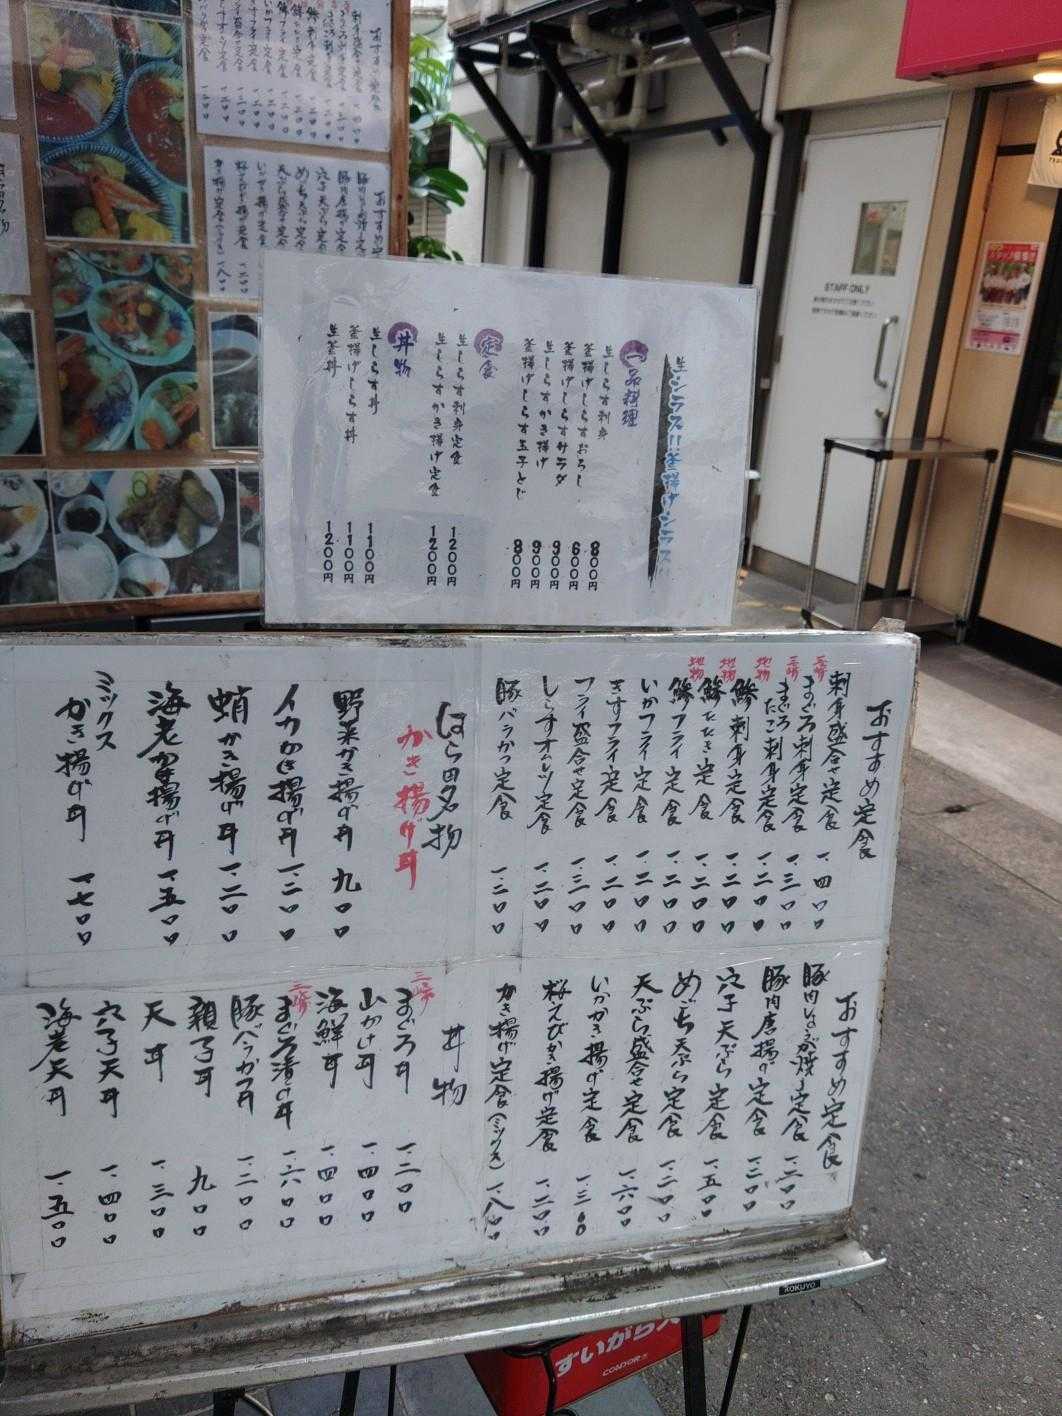 生シラス!!釜揚げシラス!!
一品料理
生しらす刺身 800円
釜揚げしらすおろし 600円
釜揚げしらすサラダ 900円
生しらすかき揚げ 900円
釜揚げしらす玉子とじ 800円
定食
生しらす刺身定食 1200円
生しらすかき揚げ定食 1200円
丼物
生しらす丼 1100円
釜揚げしらす丼 1100円
生釜丼 1200円
おすすめ定食
刺身盛合せ定食 一.四〇〇
三崎 まぐろ刺身定食 一.三〇〇
三崎 まぐろたこ刺身定食 一.二〇〇
地物 鯵刺身定食 一.二〇〇
地物 鯵たたき定食 一.二〇〇
地物 鯵フライ定食 一.二〇〇
いかフライ定食 一.二〇〇
きすフライ定食 一.二〇〇
フライ盛合せ定食 一.三〇〇
しらすオムレツ定食 一.二〇〇
豚バラかつ定食 一.二〇〇
はら田名物
かき揚げ丼
野菜かき揚げ丼 九〇〇
イカかき揚げ丼 一.二〇〇
蛸かき揚げ丼 一.二〇〇
海老かき揚げ丼 一.五〇〇
ミックスかき揚げ丼 一.七〇〇
おすすめ定食
豚肉しょうが焼き定食 一.二〇〇
豚肉唐揚げ定食 一.二〇〇
穴子天ぷら定食 一.五〇〇
めごち天ぷら定食 一.二〇〇
天ぷら盛合せ定食 一.六〇〇
いかかき揚げ定食 一.三〇〇
桜えびかき揚げ定食 一.二〇〇
かき揚げ定食(ミックス) 一.八〇〇
丼物
三崎 まぐろ丼 一.二〇〇
山かけ丼 一.四〇〇
海鮮丼 一.四〇〇
三崎 まぐろ漬け丼 一.六〇〇
豚バラカツ丼 一.二〇〇
親子丼 九〇〇
天丼 一.三〇〇
穴子天丼 一.四〇〇
海老天丼 一.五〇〇
STAFF ONLY
KOKUYO
すいがら入
CONDOR